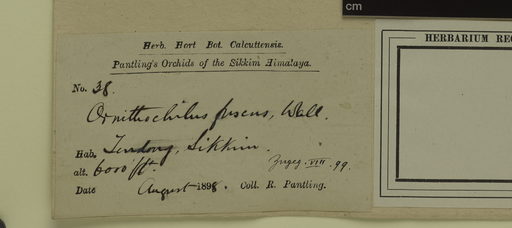 cm
HERBARIUM REC
Herb. Hort Bot. Calcuttensis.
Pantling's Orchids of the Sikkim Himalaya.
No. 38.
Ornithochilus fuscus, Wall.
Hab. Tendong, Sikkim.
alt. 6000 ft.
VIII. 99.
Date August 1898. Coll. R. Pantling.